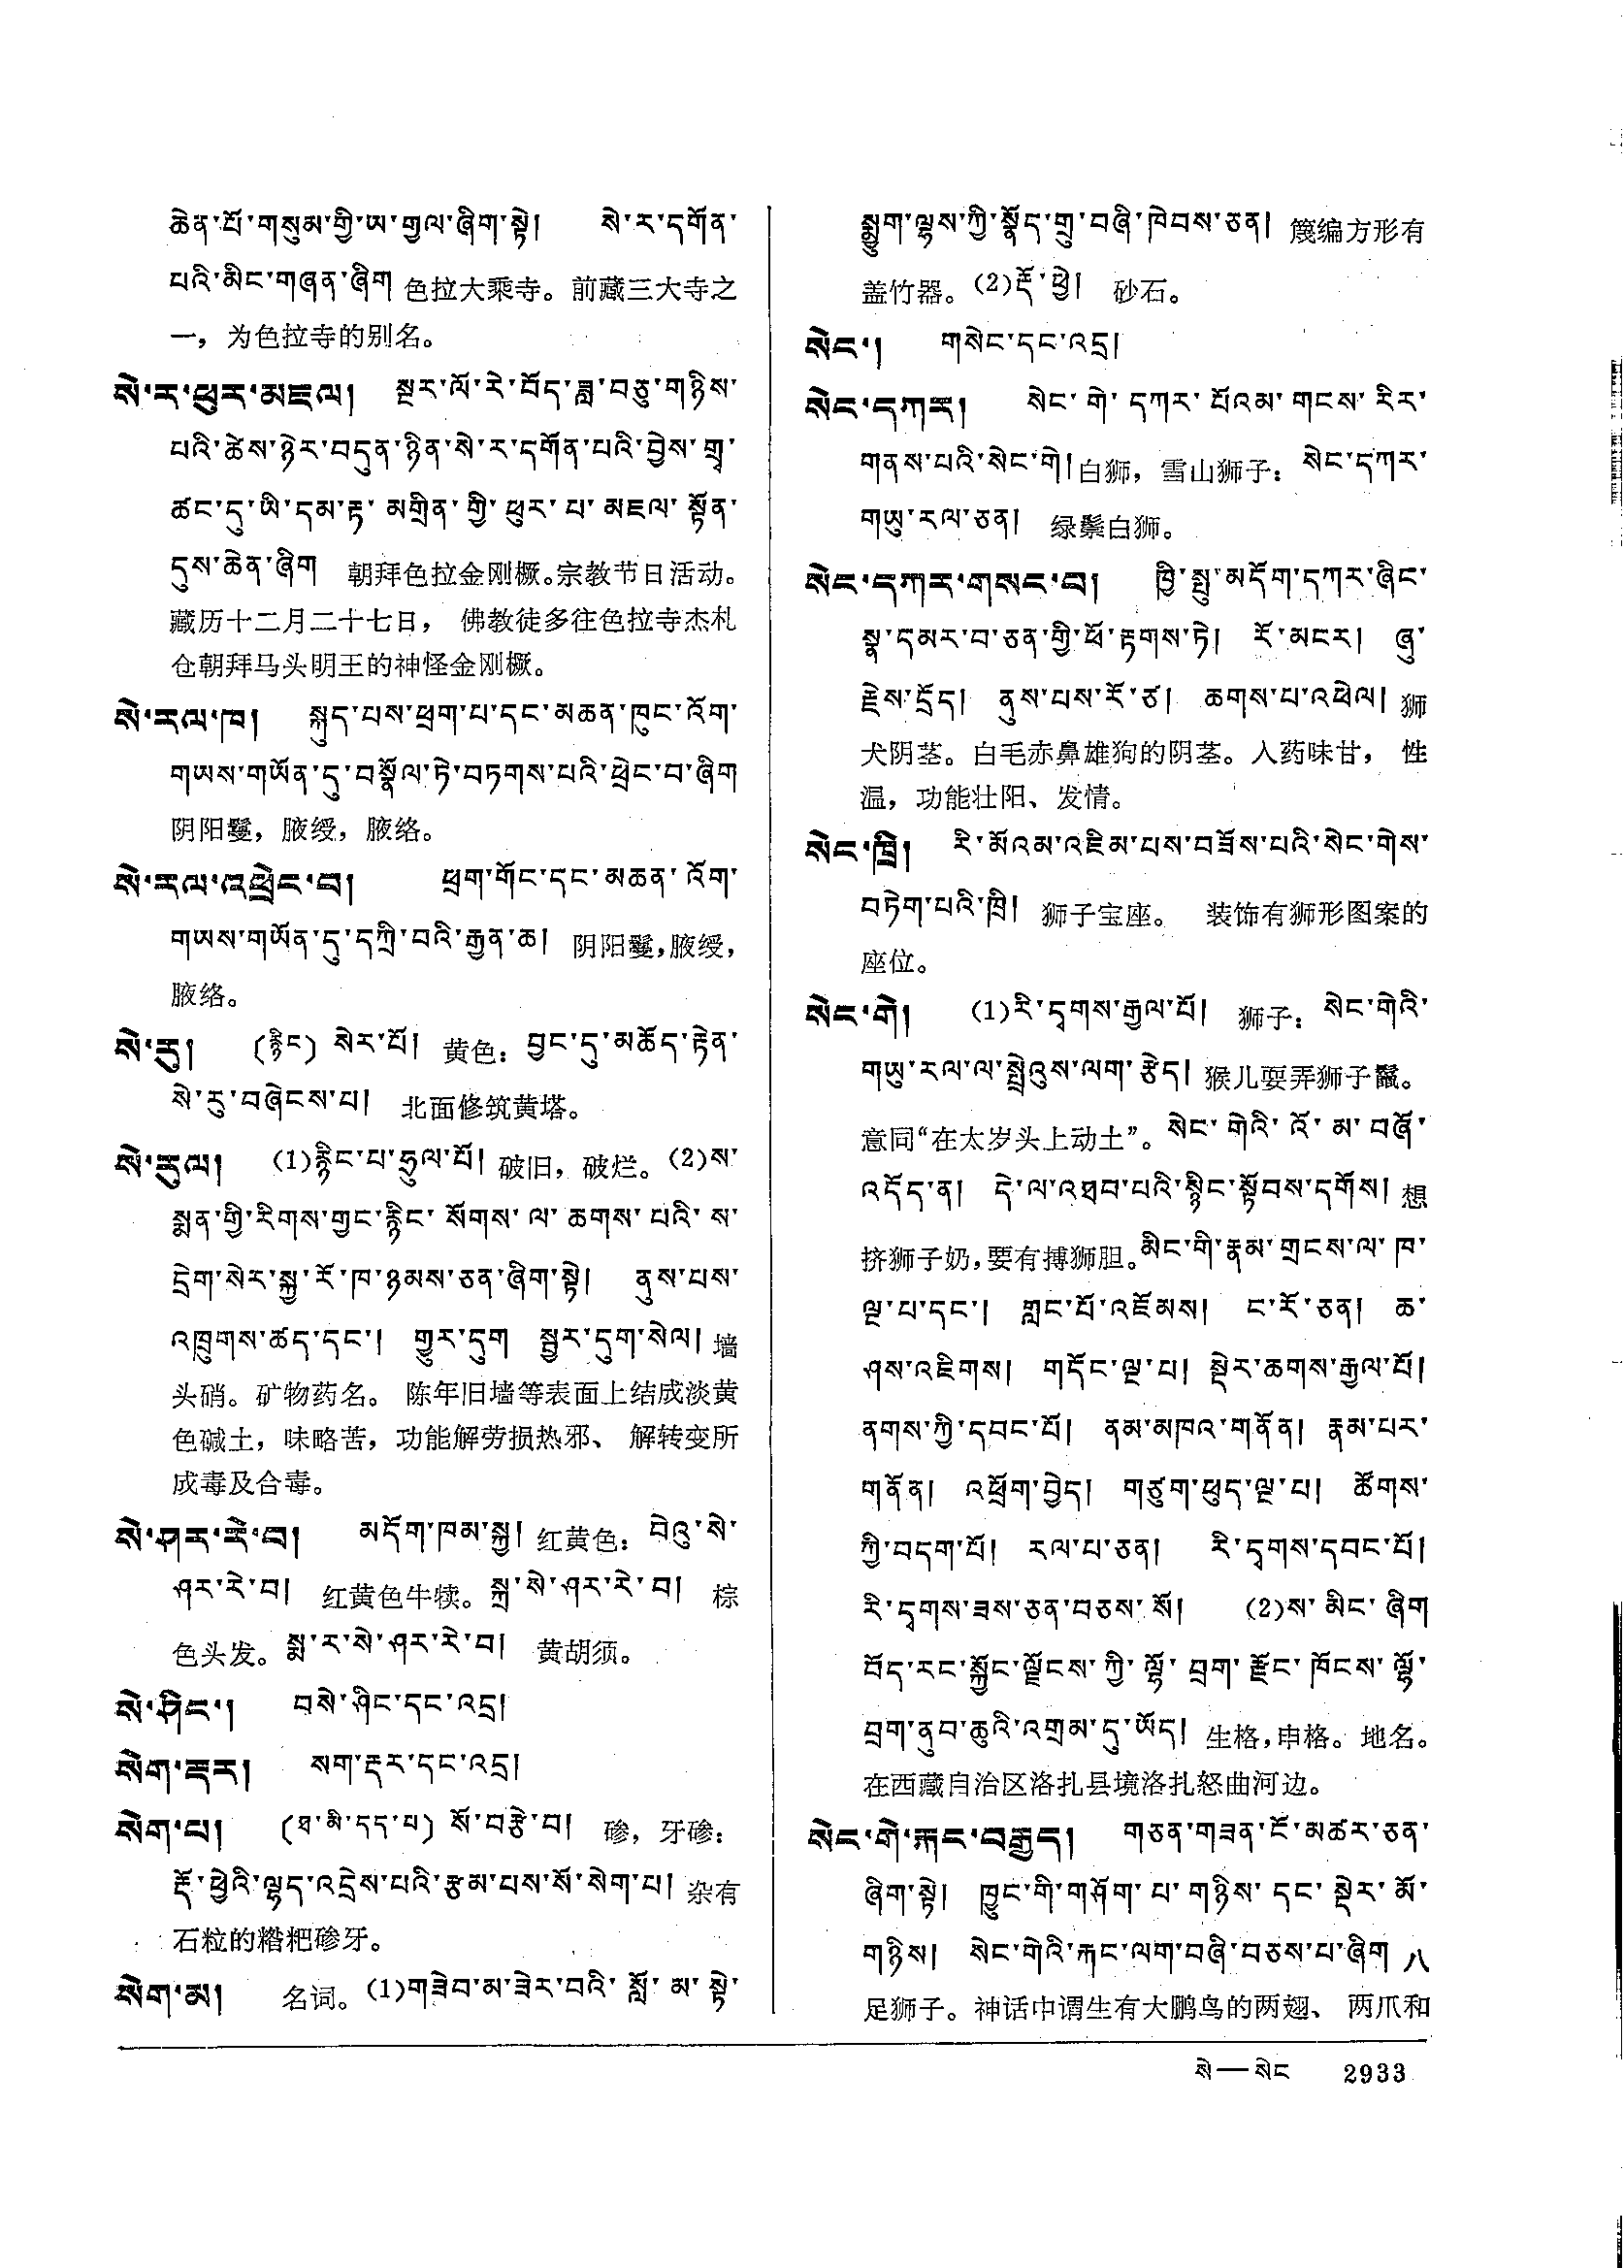 ཆེན་པོ་གསུམ་གྱི་ཨ་གྱལ་ཞིག་སྟེ། སེ་ར་དགོན་
པའི་མིང་གཞན་ཞིག 色拉大乘寺。前藏三大寺之
一，为色拉寺的别名。
སེ་ར་ཕུར་མཇལ། སྔར་ལོ་རེ་བོད་ཟླ་བཅུ་གཉིས་
པའི་ཚེས་ཉེར་བདུན་ཉིན་སེ་ར་དགོན་པའི་བྱེས་གྲྭ་
ཚང་དུ་ཡི་དམ་རྟ་མགྲིན་གྱི་ཕུར་པ་མཇལ་སྟོན་
དུས་ཆེན་ཞིག 朝拜色拉金刚橛。宗教节日活动。
藏历十二月二十七日，佛教徒多往色拉寺杰札
仓朝拜马头明王的神怪金刚橛。
སེ་རལ་ཁ། སྐུད་པས་ཕྲག་པ་དང་མཆན་ཁུང་འོག་
གཡས་གཡོན་དུ་བསྣོལ་ཏེ་བཏགས་པའི་ཕྲེང་བ་ཞིག
阴阳鬘，腋绶，腋络。
སེ་རལ་འཕྲེང་བ། ཕྲག་གོང་དང་མཆན་འོག་
གཡས་གཡོན་དུ་དཀྲི་བའི་རྒྱན་ཆ། 阴阳鬘，腋绶，
腋络。
སེ་རུ། (རྙིང) སེར་པོ། 黄色：བྱང་དུ་མཆོད་རྟེན་
སེ་རུ་བཞེངས་པ། 北面修筑黄塔。
སེ་རུལ། (1)རྙིང་པ་ཧྲུལ་པོ། 破旧，破烂。(2)ས་
སྨན་གྱི་རིགས་གྱང་རྙིང་སོགས་ལ་ཆགས་པའི་ས་
དྲེག་སེར་སྐྱ་རོ་ཁ་ཉམས་ཅན་ཞིག་སྟེ། ནུས་པས་
འཁྲུགས་ཚད་དང་། གྱུར་དུག སྦྱར་དུག་སེལ། 墙
头硝。矿物药名。陈年旧墙等表面上结成淡黄
色碱土，味略苦，功能解劳损热邪、解转变所
成毒及合毒。
སེ་ཤར་རེ་བ། མདོག་ཁམ་སྐྱ། 红黄色：བེའུ་སེ་
ཤར་རེ་བ། 红黄色牛犊。སྐྲ་སེ་ཤར་རེ་བ། 棕
色头发。སྨ་ར་སེ་ཤར་རེ་བ། 黄胡须。
སེ་ཤིང་། བསེ་ཤིང་དང་འདྲ།
སེག་རྡར། སག་རྡར་དང་འདྲ།
སེག་པ། (ཐ་མི་དད་པ) སོ་བརྩེ་བ། 碜，牙碜：
རྡོ་ཕྱེའི་ལྷད་འདྲེས་པའི་རྩམ་པས་སོ་སེག་པ། 杂有
石粒的糌粑碜牙。
སེག་མ། 名词。(1)གཟེབ་མ་ཟེར་བའི་སློ་མ་སྟེ་
སྨྱུག་ལྷས་ཀྱི་སྣོད་གྲུ་བཞི་ཁེབས་ཅན། 篾编方形有
盖竹器。(2)རྡོ་ཕྱེ། 砂石。
སེང་། གསེང་དང་འདྲ།
སེང་དཀར། སེང་གེ་དཀར་པོའམ་གངས་རིར་
གནས་པའི་སེང་གེ། 白狮，雪山狮子：སེང་དཀར་
གཡུ་རལ་ཅན། 绿鬃白狮。
སེང་དཀར་གསང་བ། ཁྱི་སྤུ་མདོག་དཀར་ཞིང་
སྣ་དམར་བ་ཅན་གྱི་ཕོ་རྟགས་ཏེ། རོ་མངར། ཞུ་
རྗེས་དྲོད། ནུས་པས་རོ་ཙ། ཆགས་པ་འཕེལ། 狮
犬阴茎。白毛赤鼻雄狗的阴茎。入药味甘，性
温，功能壮阳、发情。
སེང་ཁྲི། རི་མོའམ་འཇིམ་པས་བཟོས་པའི་སེང་གེས་
བཏེག་པའི་ཁྲི། 狮子宝座。装饰有狮形图案的
座位。
སེང་གེ། (1)རི་དྭགས་རྒྱལ་པོ། 狮子：སེང་གེའི་
གཡུ་རལ་ལ་སྤྲེའུས་ལག་རྩེད། 猴儿耍弄狮子鬣。
意同“在太岁头上动土”。སེང་གེའི་འོ་མ་བཞོ་
འདོད་ན། དེ་ལ་འཐབ་པའི་སྙིང་སྟོབས་དགོས། 想
挤狮子奶，要有搏狮胆。མིང་གི་རྣམ་གྲངས་ལ་ཁ་
ལྔ་པ་དང་། གླང་པོ་འཇོམས། ང་རོ་ཅན། ཆ་
ཤས་འཇིགས། གདོང་ལྔ་པ། སྡེར་ཆགས་རྒྱལ་པོ།
ནགས་ཀྱི་དབང་པོ། ནམ་མཁའ་གནོན། རྣམ་པར་
གནོན། འཕྲོག་བྱེད། གཙུག་ཕུད་ལྔ་པ། ཚོགས་
ཀྱི་བདག་པོ། རལ་པ་ཅན། རི་དྭགས་དབང་པོ།
རི་དྭགས་ཟས་ཅན་བཅས་སོ། (2)ས་མིང་ཞིག
བོད་རང་སྐྱོང་ལྗོངས་ཀྱི་ལྷོ་བྲག་རྫོང་ཁོངས་ལྷོ་
བྲག་ནུབ་ཆུའི་འགྲམ་དུ་ཡོད། 生格，申格。地名。
在西藏自治区洛扎县境洛扎怒曲河边。
སེང་གེ་རྐང་བརྒྱད། གཅན་གཟན་ངོ་མཚར་ཅན་
ཞིག་སྟེ། ཁྱུང་གི་གཤོག་པ་གཉིས་དང་སྡེར་མོ་
གཉིས། སེང་གེའི་རྐང་ལག་བཞི་བཅས་པ་ཞིག 八
足狮子。神话中谓生有大鹏鸟的两翅、两爪和
སེ—སེང 2933